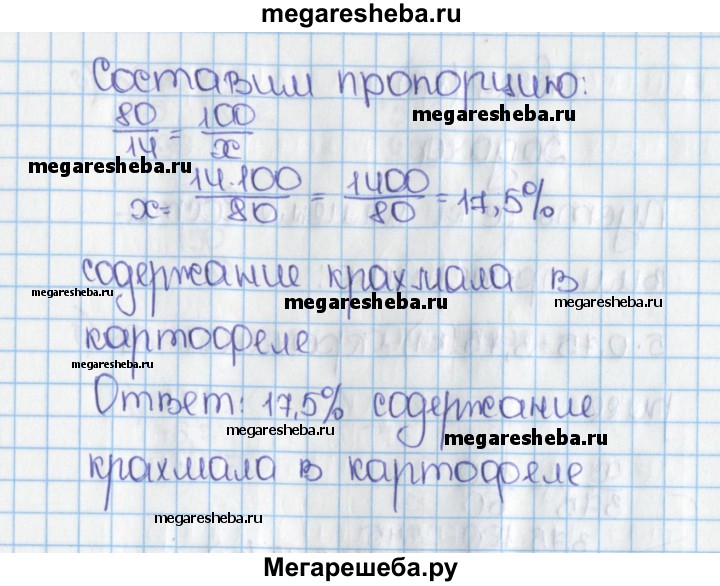 megaresheba.ru
Составим пропорцию:
megaresheba.ru
80/14 = 100/x
megaresheba.ru
x = 14·100/80 = 1400/80 = 17,5%
содержание крахмала в
megaresheba.ru megaresheba.ru megaresheba.ru
картофеле
megaresheba.ru
Ответ: 17,5% содержание
megaresheba.ru megaresheba.ru
крахмала в картофеле
megaresheba.ru
Мегарешеба.ру